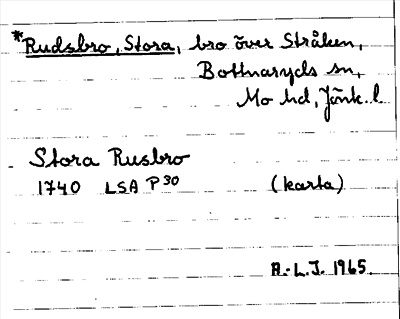 *Rudsbro, Stora, bro över Stråken,
Bottnaryds sn,
Mo hd, Jönk. l.
Stora Rusbro
1740 LSA P 30 (karta)
A.-L.J. 1965.